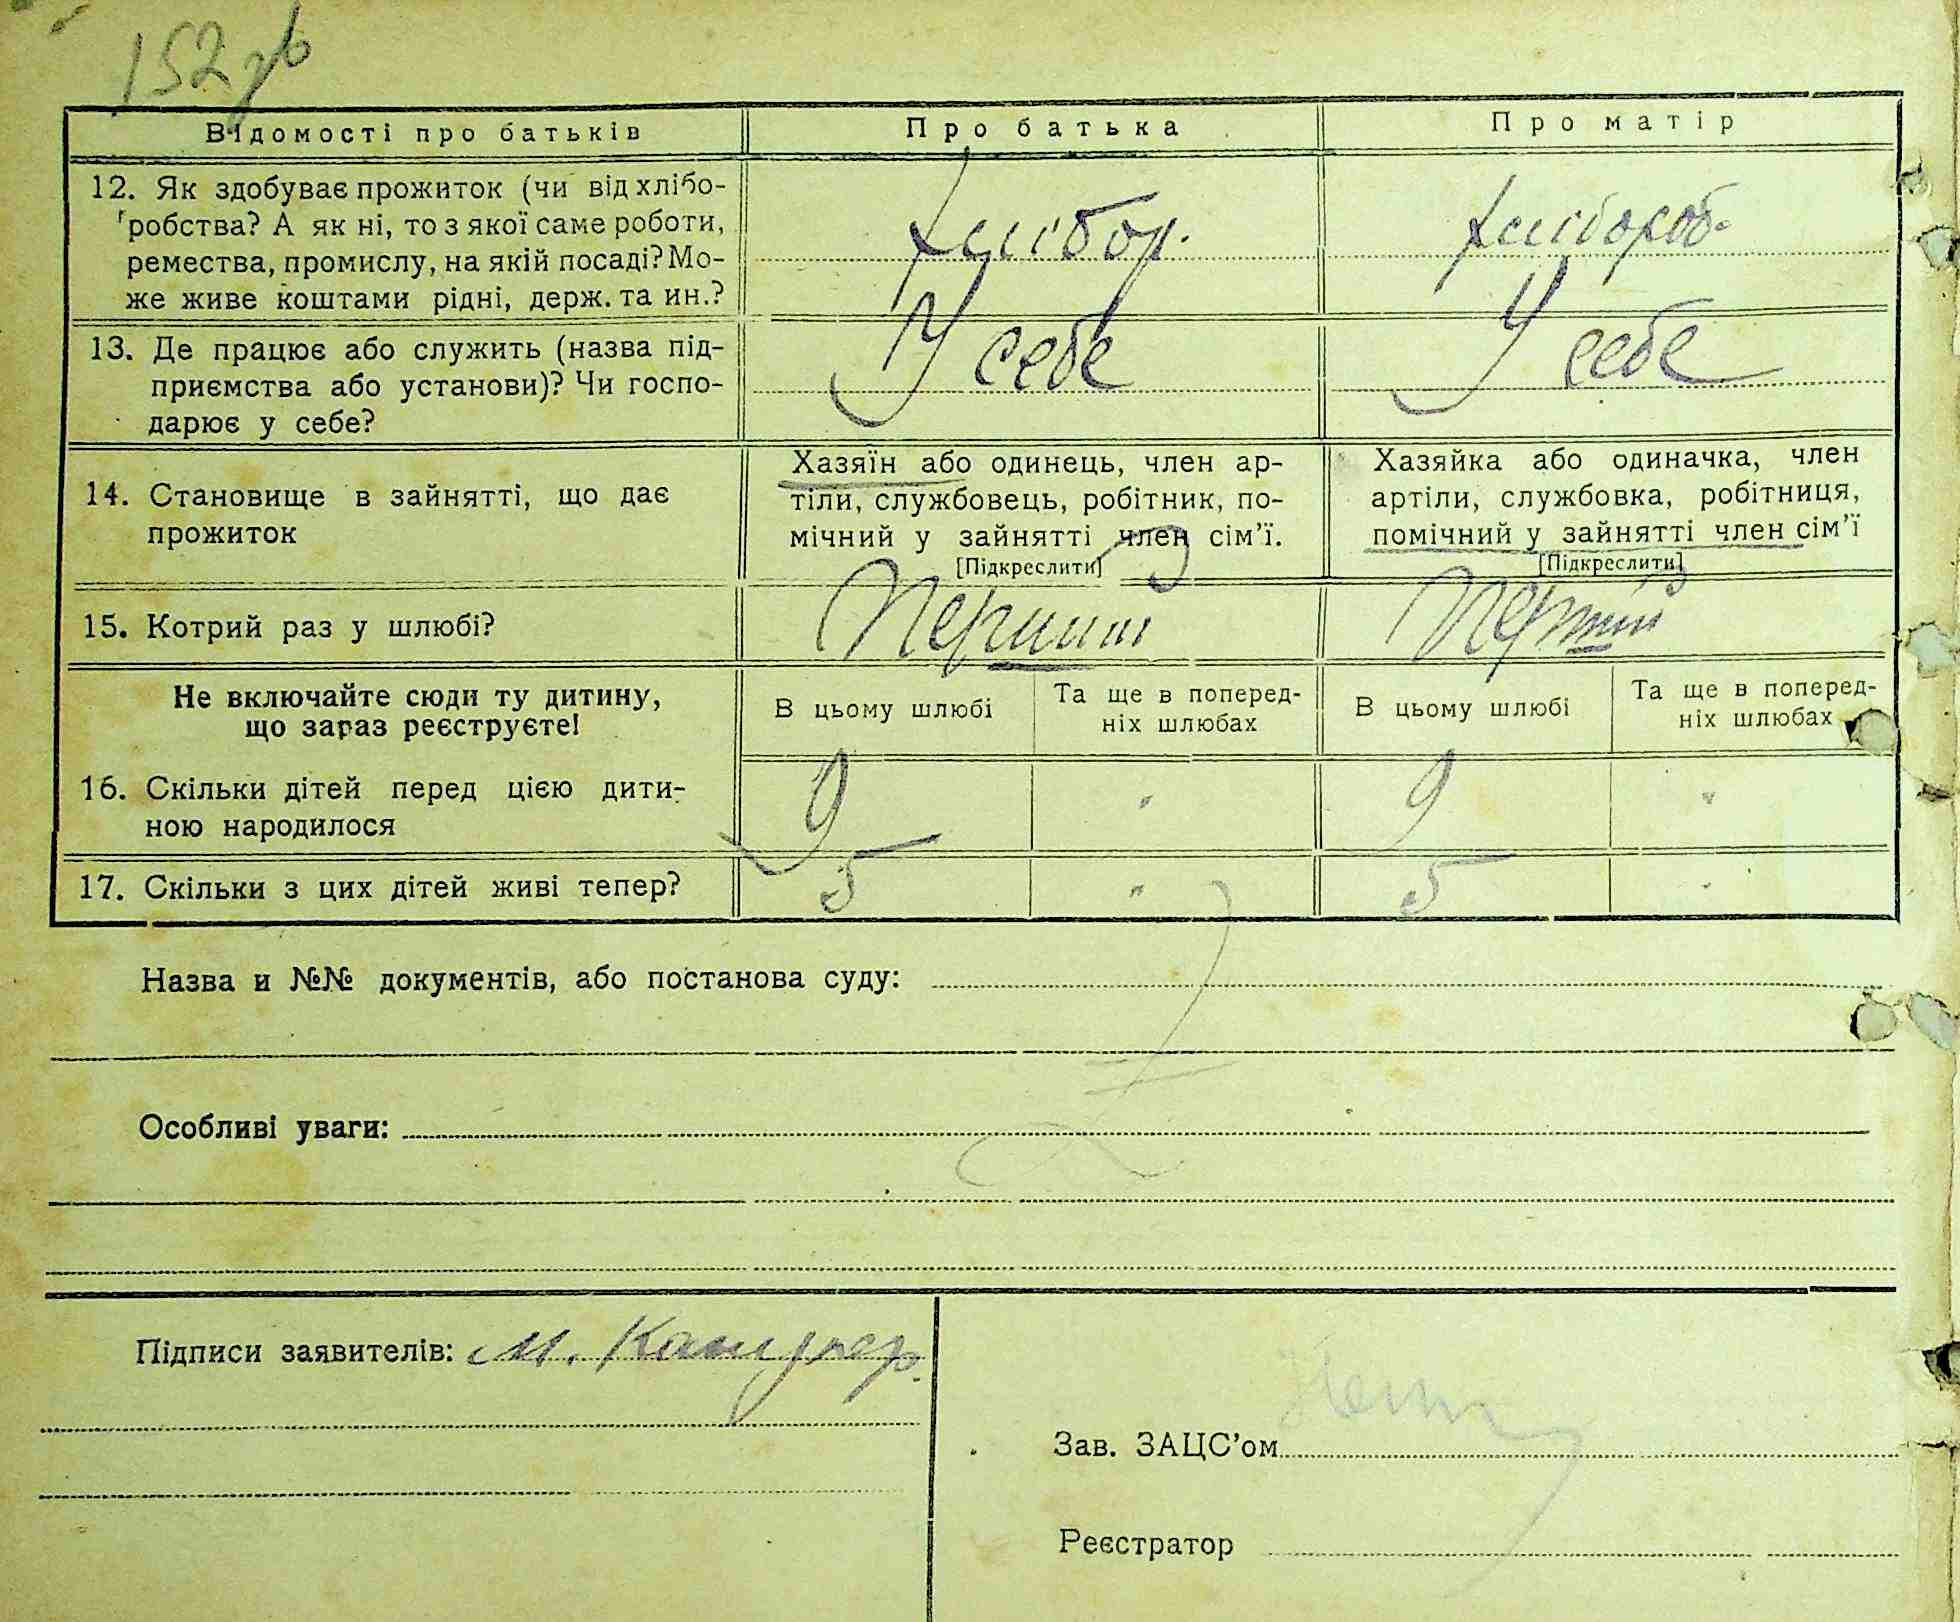 152 зв
Відомості про батьків Про батька Про матір
12. Як здобуває прожиток (чи від хлібо-
робства? А як ні, то з якої саме роботи,
ремества, промислу, на якій посаді? Мо-
же живе коштами рідні, держ. та ин.?
хлібор. хлібороб.
13. Де працює або служить (назва під-
приємства або установи)? Чи госпо-
дарює у себе?
У себе У себе
14. Становище в зайнятті, що дає
прожиток
Хазяїн або одинець, член ар-
тіли, службовець, робітник, по-
мічний у зайнятті член сім'ї.
[Підкреслити]
Хазяйка або одиначка, член
артіли, службовка, робітниця,
помічний у зайнятті член сім'ї
[Підкреслити]
15. Котрий раз у шлюбі? Перший Перший
Не включайте сюди ту дитину,
що зараз реєструєте!
В цьому шлюбі
Та ще в поперед-
ніх шлюбах
В цьому шлюбі
Та ще в поперед-
ніх шлюбах
16. Скільки дітей перед цією дити-
ною народилося
9 " 9 "
17. Скільки з цих дітей живі тепер? 5 " 5 "
Назва и №№ документів, або постанова суду:
Особливі уваги:
Підписи заявителів: М.
Зав. ЗАЦС'ом
Реєстратор